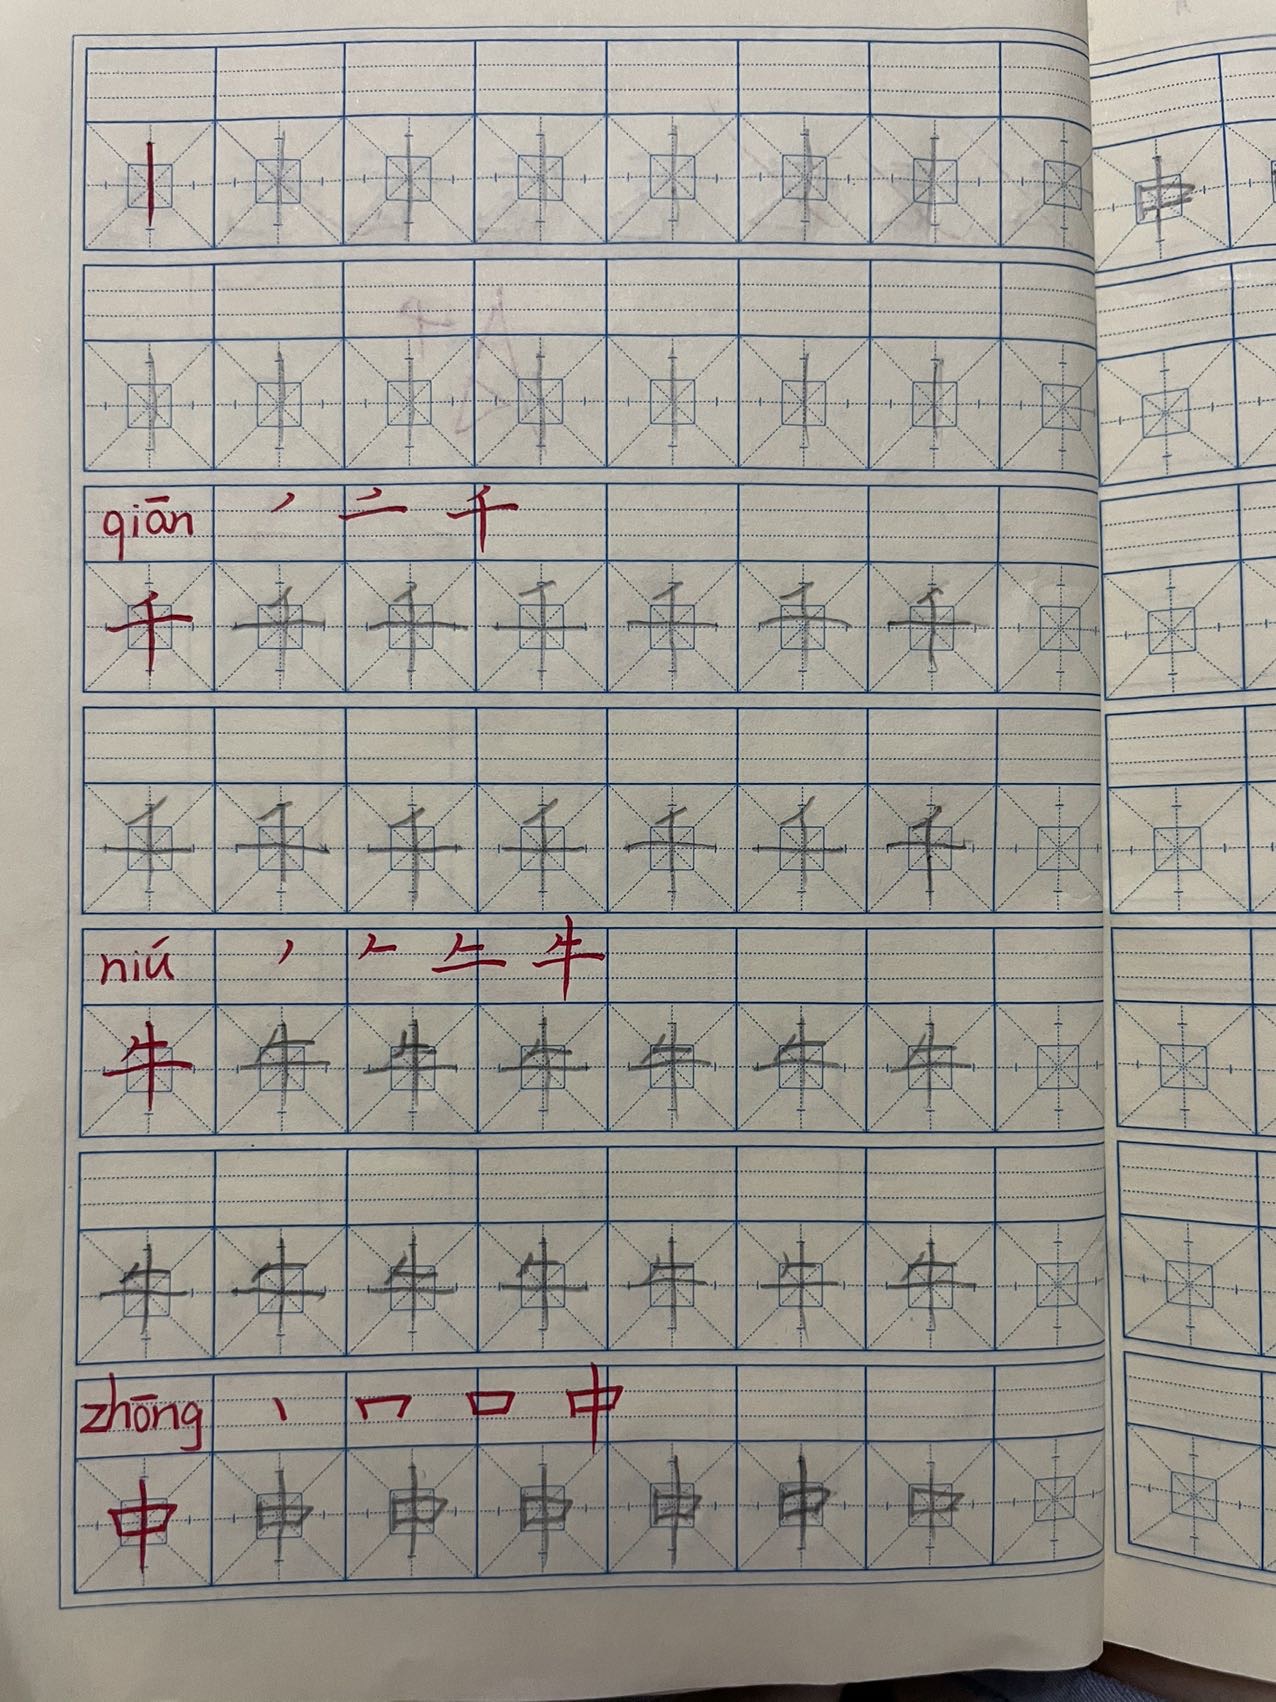 丨 丨 丨 丨 丨 丨 丨
丨 丨 丨 丨 丨 丨 丨
qiān 丿 二 千
千 千 千 千 千 千 千
千 千 千 千 千 千 千
niú 丿 𠂉 𠂒 牛
牛 牛 牛 牛 牛 牛 牛
牛 牛 牛 牛 牛 牛 牛
zhōng 丨 冂 口 中
中 中 中 中 中 中 中
中